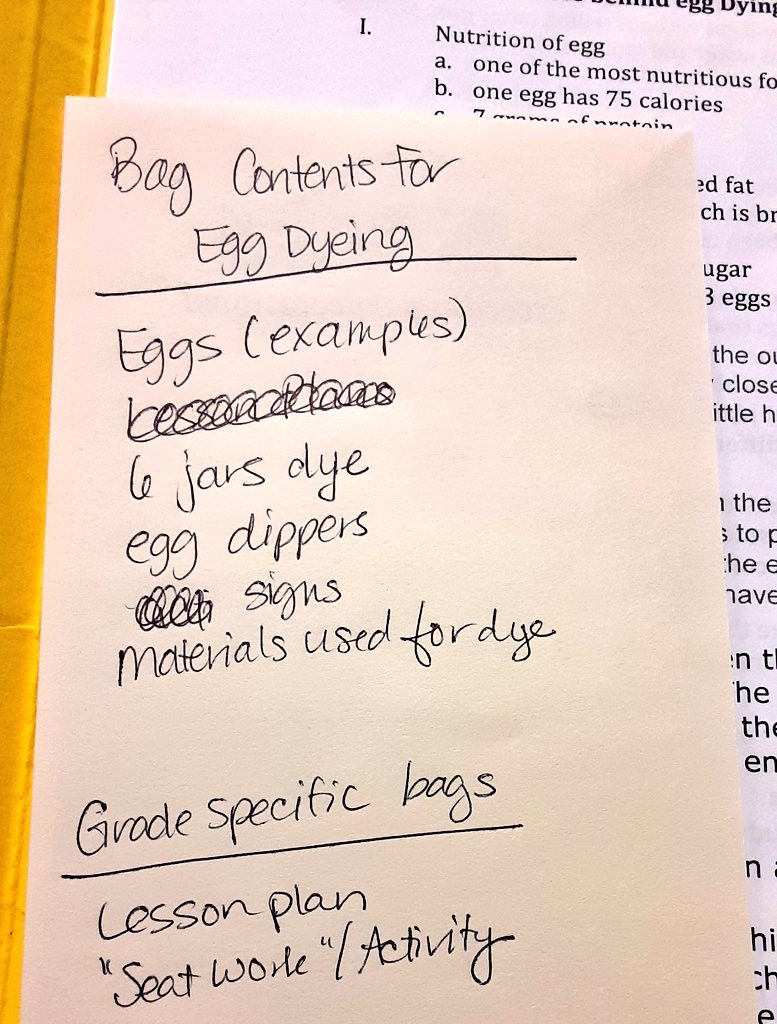 behind egg Dying
I. Nutrition of egg
a. one of the most nutritious fo
b. one egg has 75 calories
c. 7 grams of protein
ed fat
ch is br
ugar
3 eggs
the ou
close
ittle h
the
to p
the e
have
n th
he
the
en
n a
hi
ch
e
Bag Contents For
Egg Dyeing
Eggs (examples)
Lesson Plans
6 jars dye
egg dippers
signs
Materials used for dye
Grade specific bags
Lesson plan
"Seat Work"/Activity